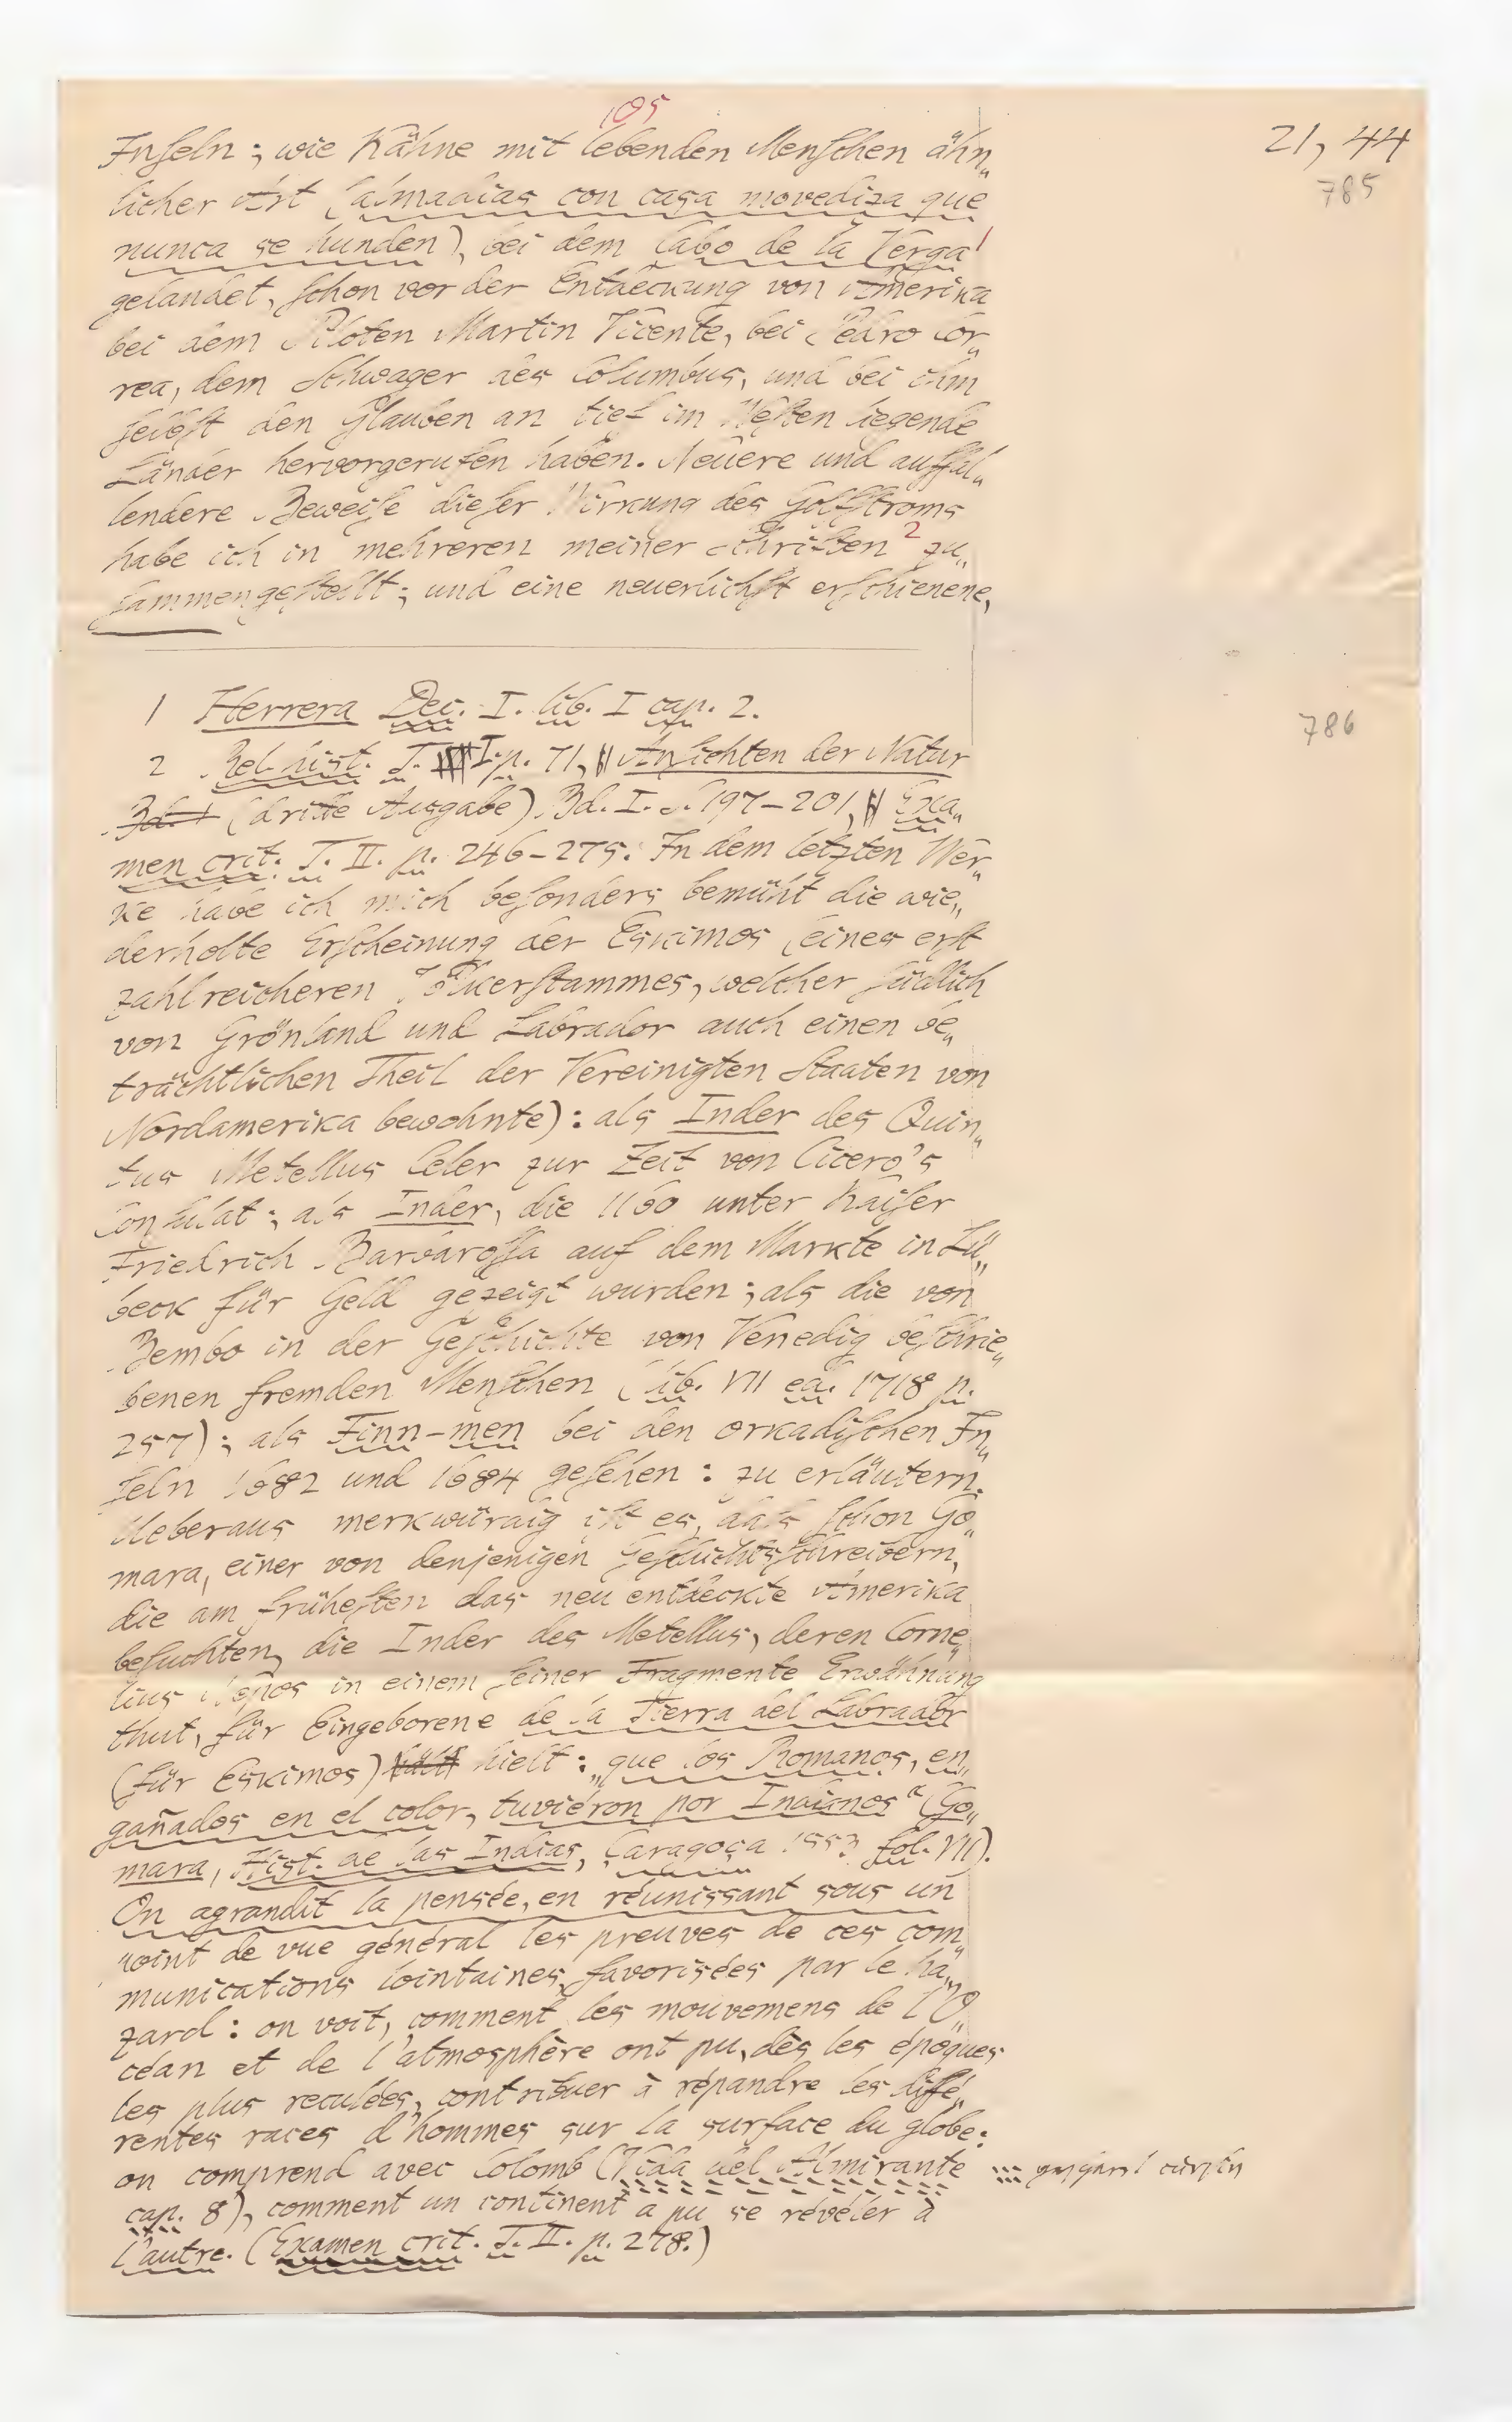 105
21, 44
785
Inſeln; wie Kähne mit lebenden Menſchen ähn„
licher Art (almadias con casa movediza que
nunca se hunden), bei dem Cabo de la Verga 1
gelandet, ſchon vor der Entdeckung von Amerika
bei dem Piloten Martin Vicente, bei Pedro Cor„
rea, dem Schwager des Columbus, und bei ihm
ſelbſt den Glauben an tief im Weſten liegende
Länder hervorgerufen haben. Neuere und auffal„
lendere Beweiſe dieſer Wirkung des Golfſtroms
habe ich in mehreren meiner Schriften 2 zu„
ſammengeſtellt; und eine neuerlichſt erſchienene,
1 Herrera Dec. I. lib. I cap. 2.
786
2 Rel. hist. T. I. p. 71, Anſichten der Natur
Bd. I (dritte Ausgabe) Bd. I. S. 197–201, Exa„
men crit. T. II. p. 246–275. In dem letzten Wer„
ke habe ich mich beſonders bemüht die wie„
derholte Erſcheinung der Eskimos (eines erſt
zahlreicheren Völkerſtammes, welcher ſüdlich
von Grönland und Labrador auch einen be„
trächtlichen Theil der Vereinigten Staaten von
Nordamerika bewohnte): als Inder des Quin„
tus Metellus Celer zur Zeit von Cicero's
Conſulat; als Inder, die 1160 unter Kaiſer
Friedrich Barbaroſſa auf dem Markte in Lü„
beck für Geld gezeigt wurden; als die von
Bembo in der Geſchichte von Venedig beſchrie„
benen fremden Menſchen (lib. VII ed. 1718 p.
257); als Finn-men bei den orkadiſchen In„
ſeln 1682 und 1684 geſehen: zu erläutern.
Ueberaus merkwürdig iſt es, daſs ſchon Go„
mara, einer von denjenigen Geſchichtsſchreibern,
die am früheſten das neu entdeckte Amerika
beſuchten, die Inder des Metellus, deren Corne„
lius Nepos in einem ſeiner Fragmente Erwähnung
thut, für Eingeborene de la Tierra del Labrador
(für Eskimos) hielt: „que los Romanos, en„
gañados en el color, tuviéron por Indianos“ (Go„
mara, Hist. de las Indias, Çaragoça 1553 fol. VII).
On agrandit la pensée, en réunissant sous un
point de vue général les preuves de ces com„
munications lointaines, favorisées par le ha„
zard: on voit, comment les mouvemens de l'O„
céan et de l'atmosphère ont pu, dès les époques
les plus reculées, contribuer à répandre les diffé„
rentes races d'hommes sur la surface du globe:
on comprend avec Colomb (Vida del Almirante
cap. 8), comment un continent a pu se révéler à
l'autre. (Examen crit. T. II. p. 278.)